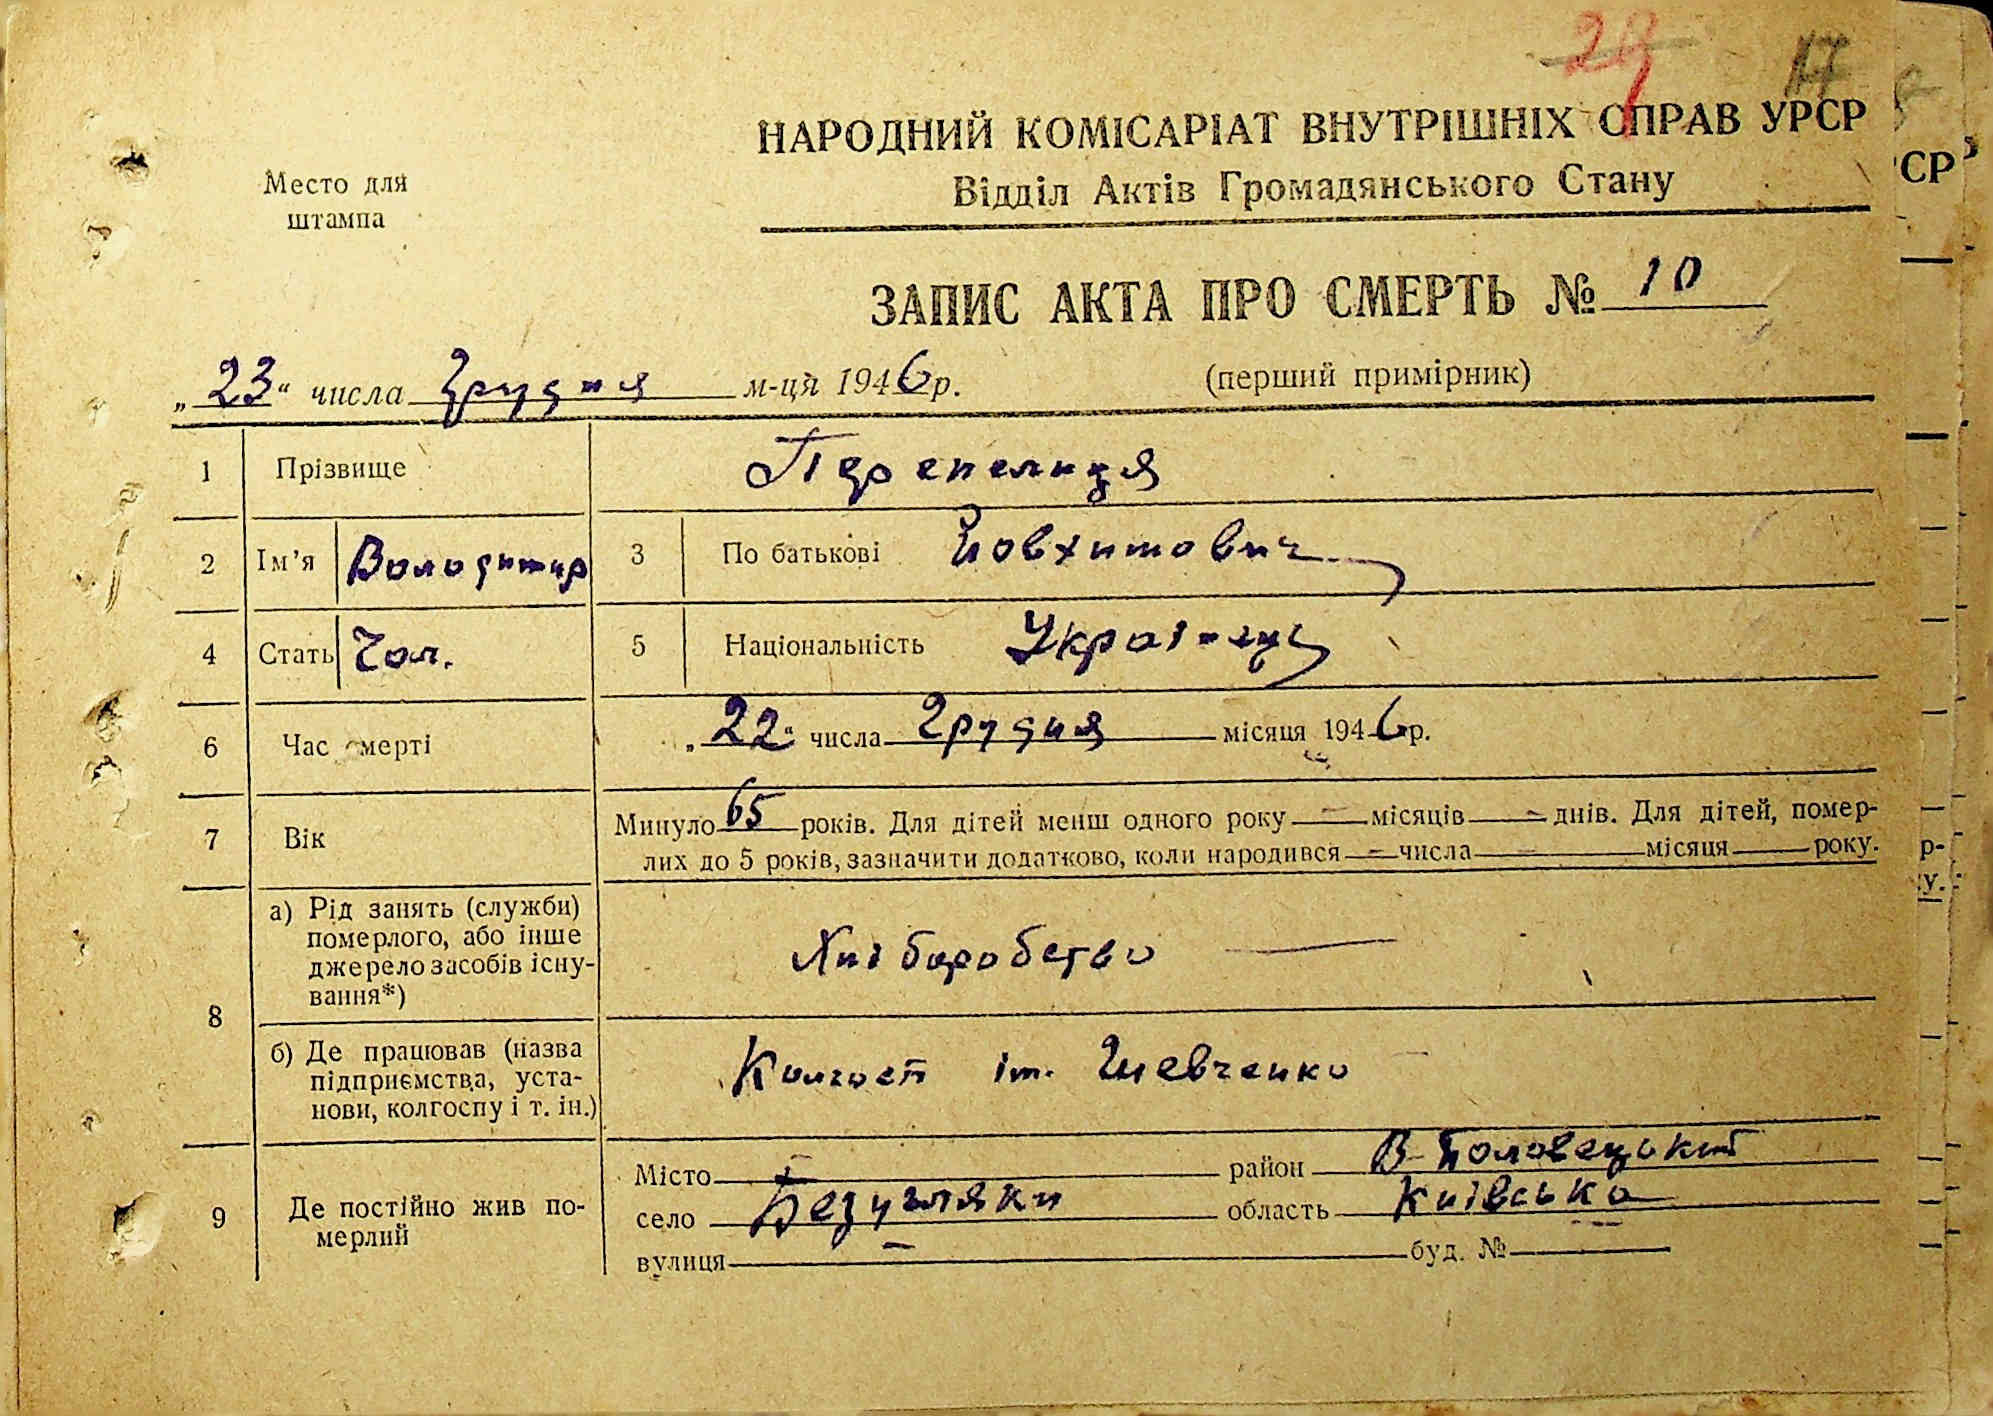 29 17
НАРОДНИЙ КОМІСАРІАТ ВНУТРІШНІХ СПРАВ УРСР
Відділ Актів Громадянського Стану
Место для
штампа
ЗАПИС АКТА ПРО СМЕРТЬ № 10
„23“ числа Грудня м-ця 1946 р.
(перший примірник)
1 Прізвище Перепелиця
2 Ім’я Володимир 3 По батькові Йовхимович
4 Стать Чол. 5 Національність Українець
6 Час смерті „22“ числа Грудня місяця 1946 р.
7 Вік Минуло 65 років. Для дітей менш одного року — місяців — днів. Для дітей, помер-
лих до 5 років, зазначити додатково, коли народився — числа — місяця — року.
8 а) Рід занять (служби)
померлого, або інше
джерело засобів існу-
вання*)
Хліборобство —
б) Де працював (назва
підприємства, уста-
нови, колгоспу і т. ін.)
Колгосп ім. Шевченко
9 Де постійно жив по-
мерлий
Місто — район В-Половецький
село Безугляки область Київська
вулиця — буд. № —
СР
р-
у.